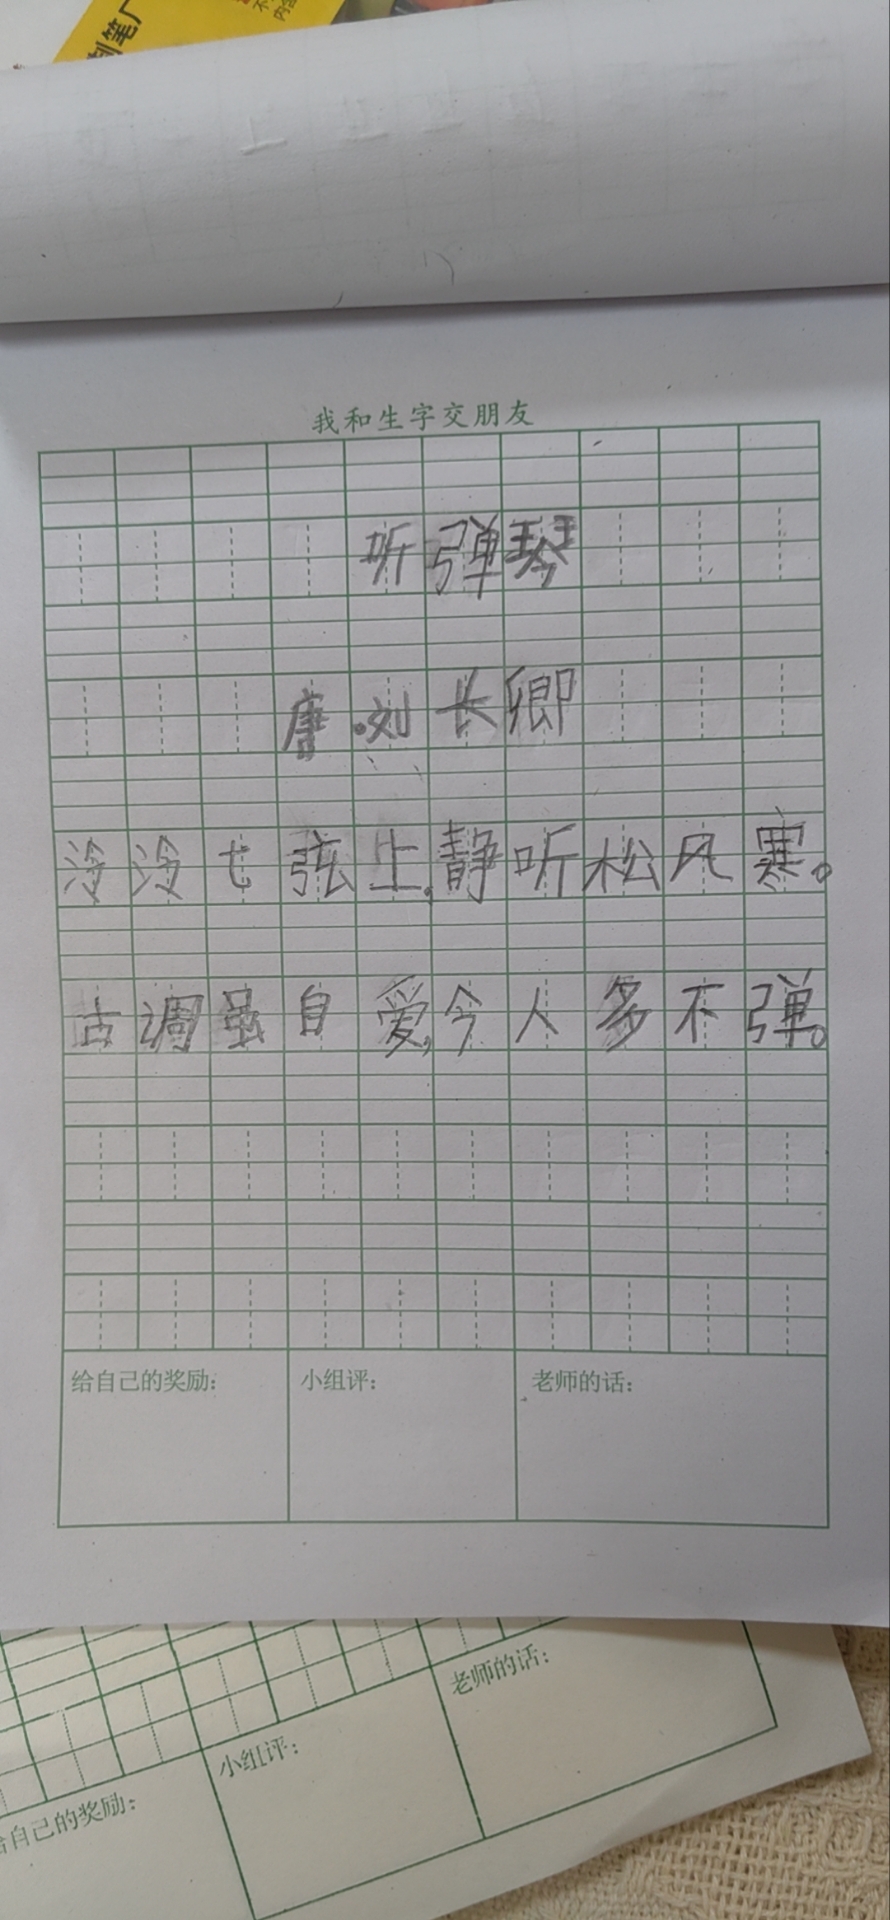 制笔厂
我和生字交朋友
听弹琴
唐·刘长卿
泠泠七弦上,静听松风寒。
古调虽自爱,今人多不弹。
给自己的奖励:
小组评:
老师的话:
老师的话:
小组评:
给自己的奖励: